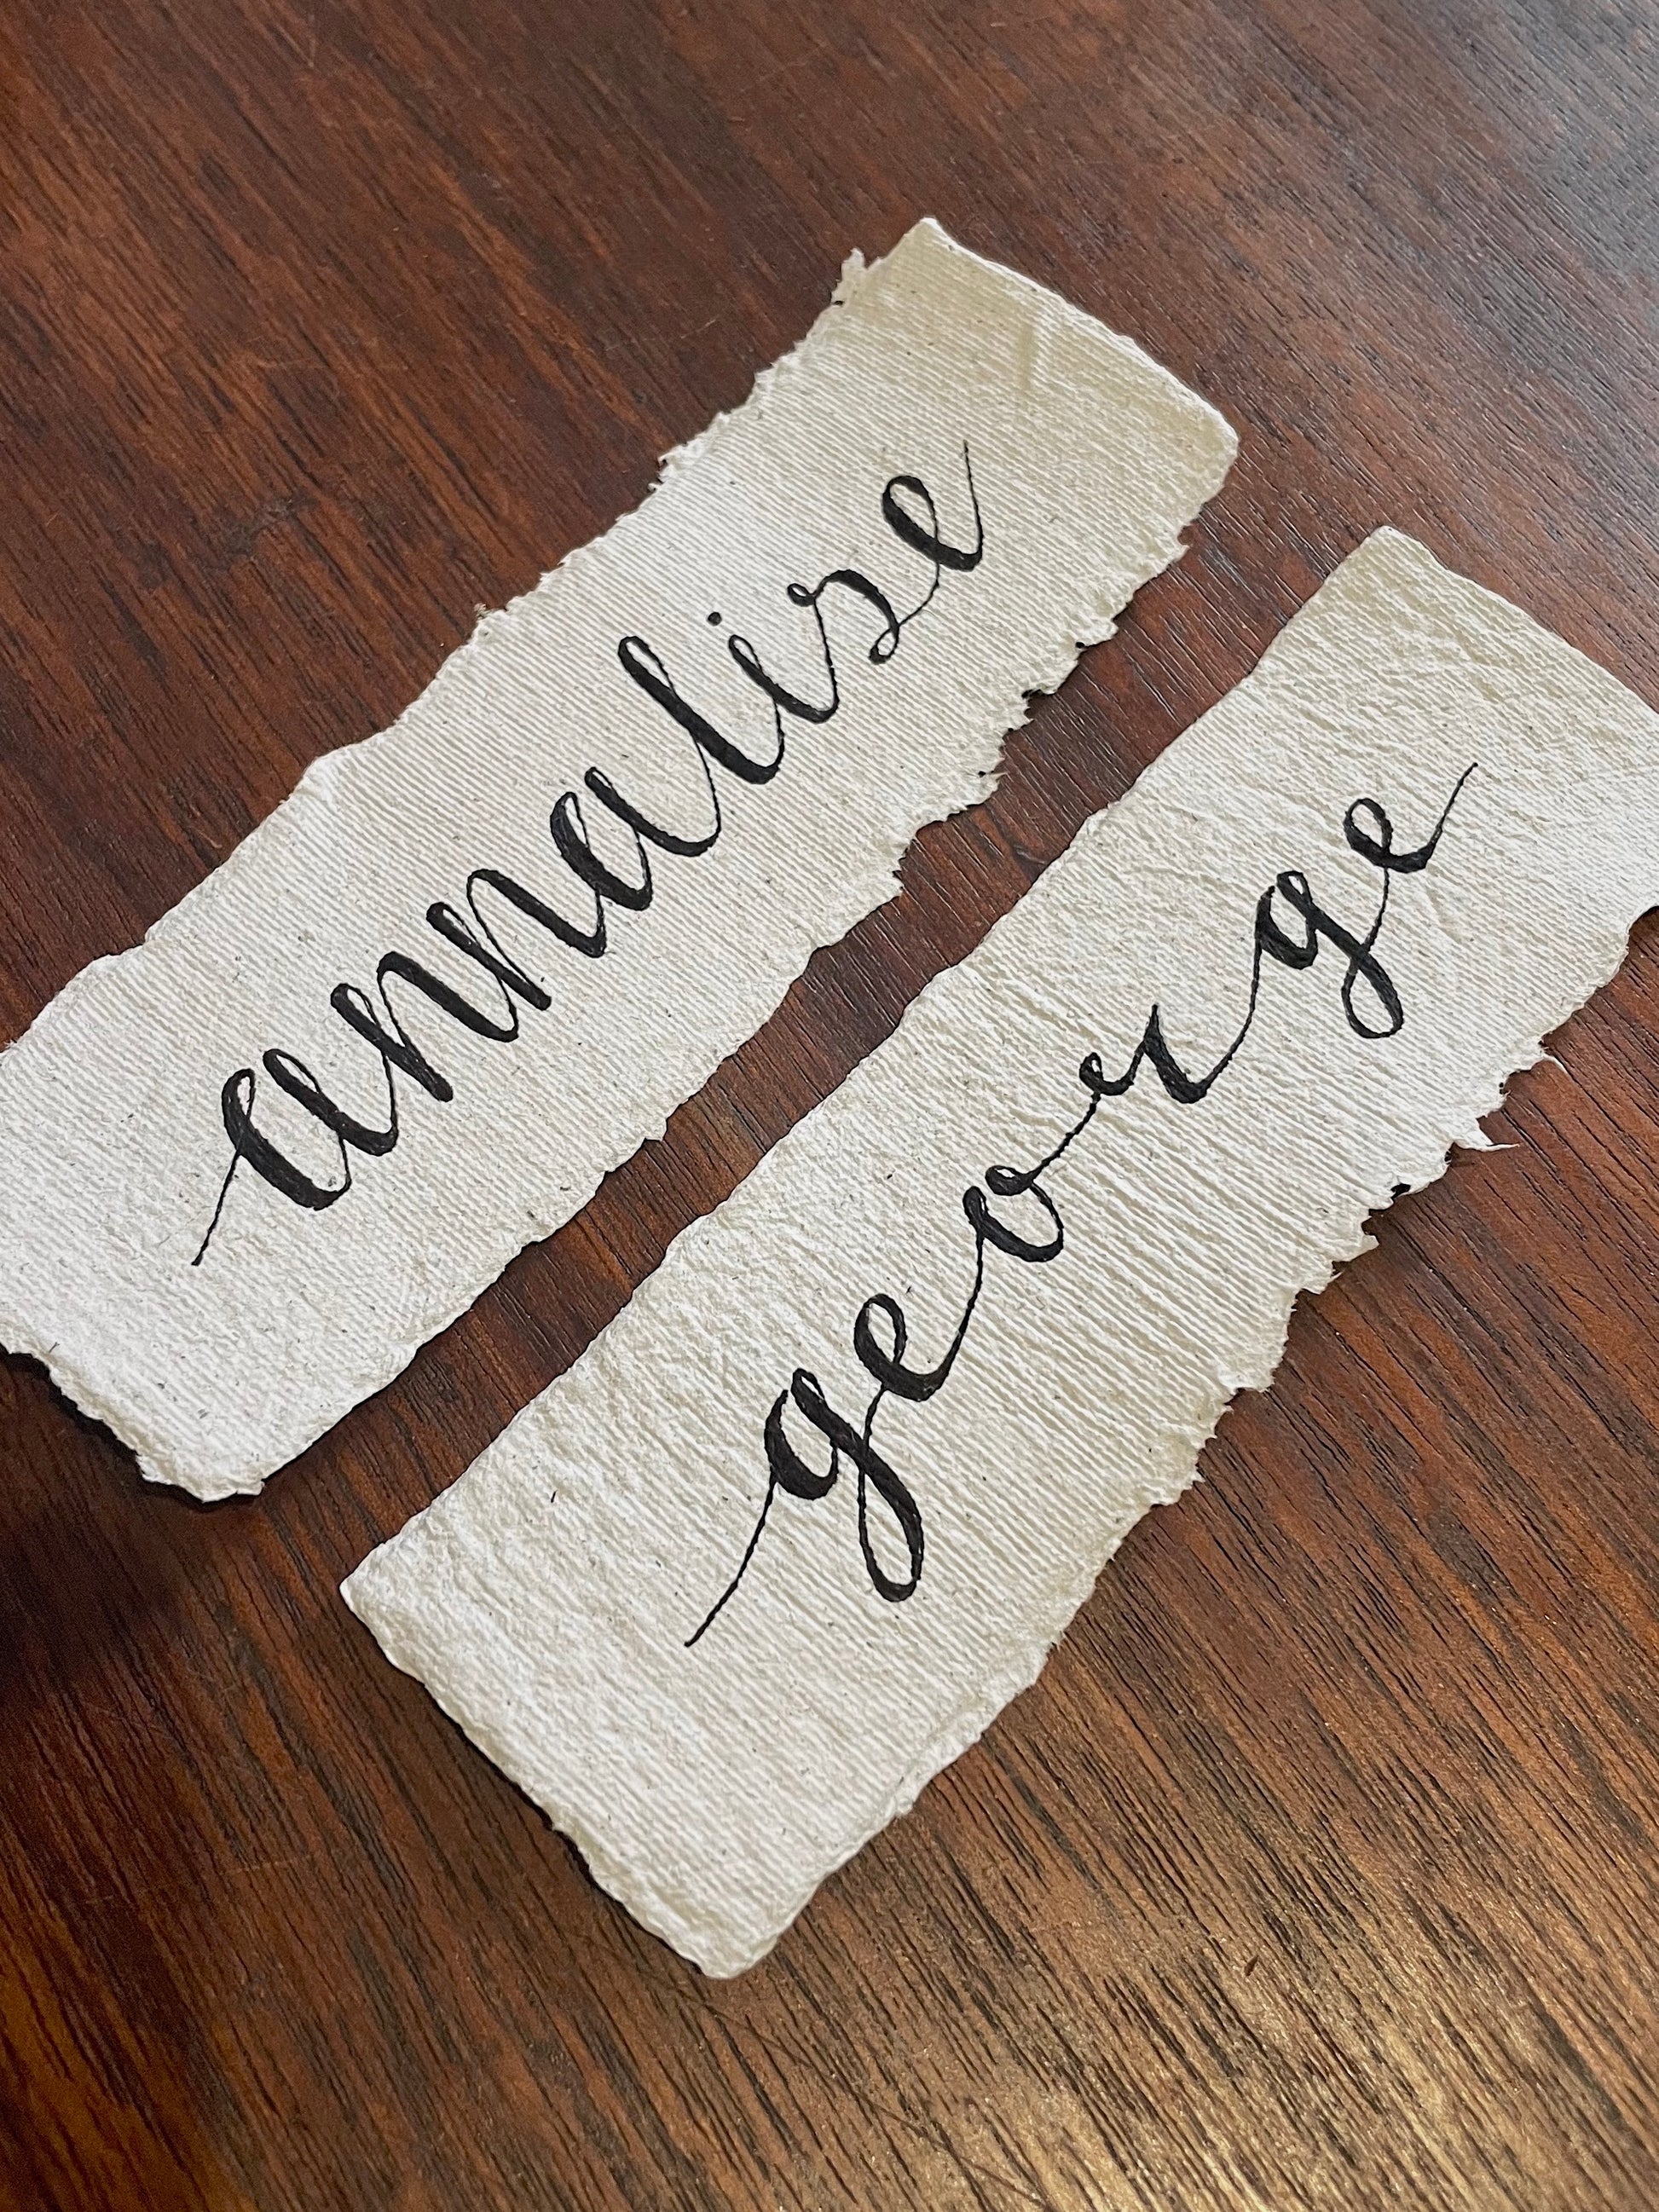 annalise
george